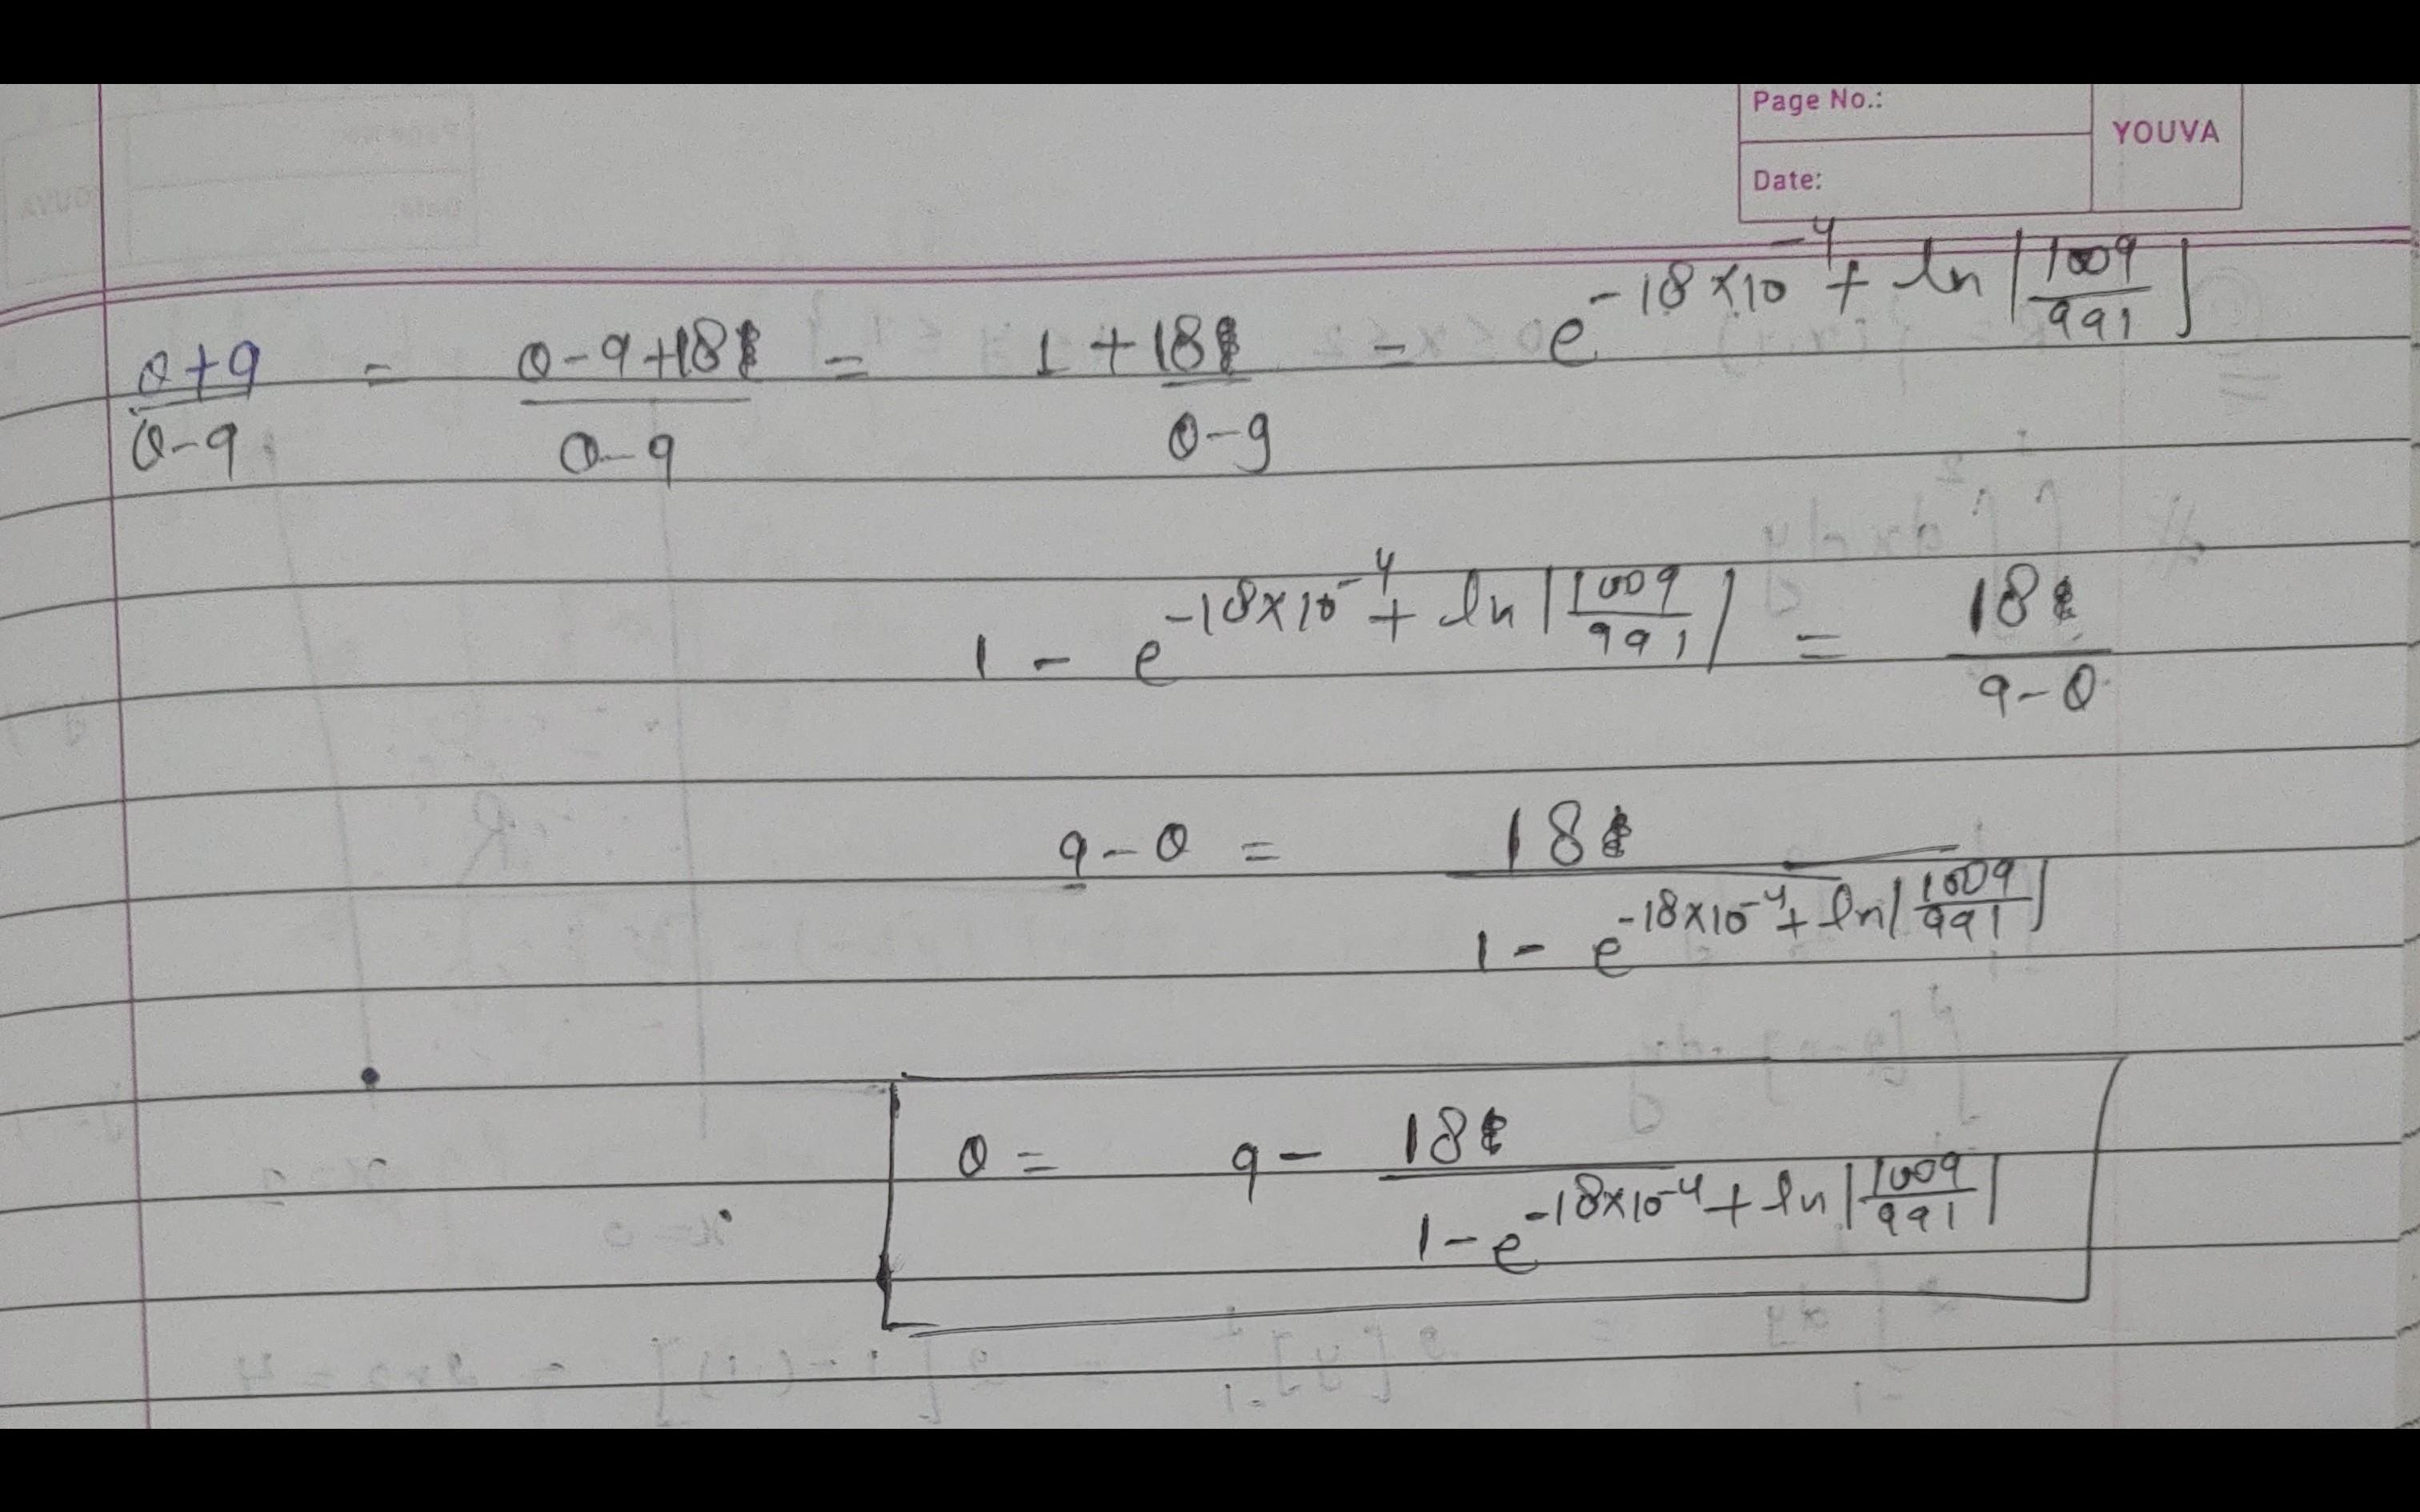 Page No.:
YOUVA
Date:
θ+9/θ-9 = θ-9+18/θ-9 = 1+18/θ-9 = e^(-18×10^-4 + ln|1009/991|)
1 - e^(-18×10^-4 + ln|1009/991|) = 18/9-θ
9-θ = 18/(1 - e^(-18×10^-4 + ln|1009/991|))
θ = 9 - 18/(1-e^(-18×10^-4 + ln|1009/991|))